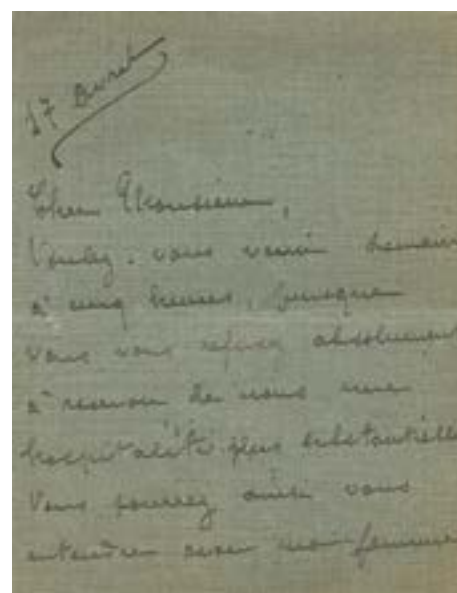 17 Avril
Cher Monsieur,
Voulez-vous venir demain
à cinq heures, puisque
vous vous refusez absolument
à recevoir de nous une
hospitalité plus substantielle
Vous pourrez ainsi vous
entendre avec ma femme